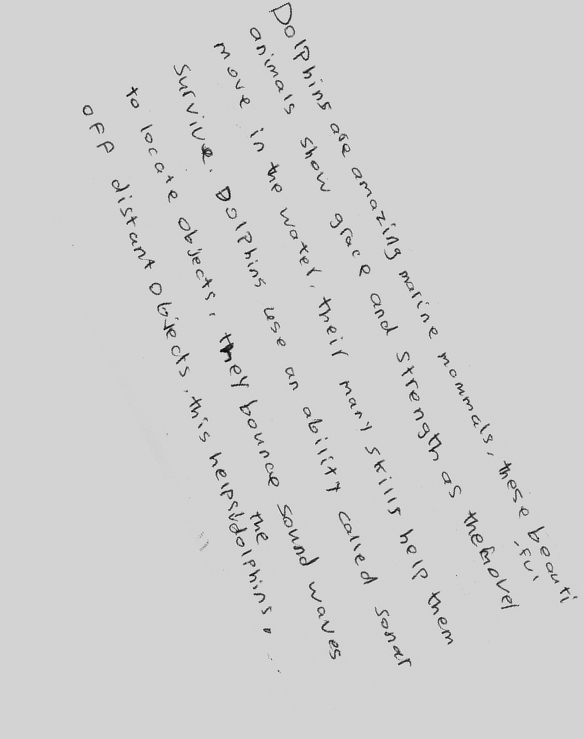 Dolphins are amazing marine mammals, these beautiful
animals show grace and strength as
move in the water, their many skills help them
survive. Dolphins use an ability called sonar
to locate objects, they bounce sound waves
off distant objects, this helps the dolphins.